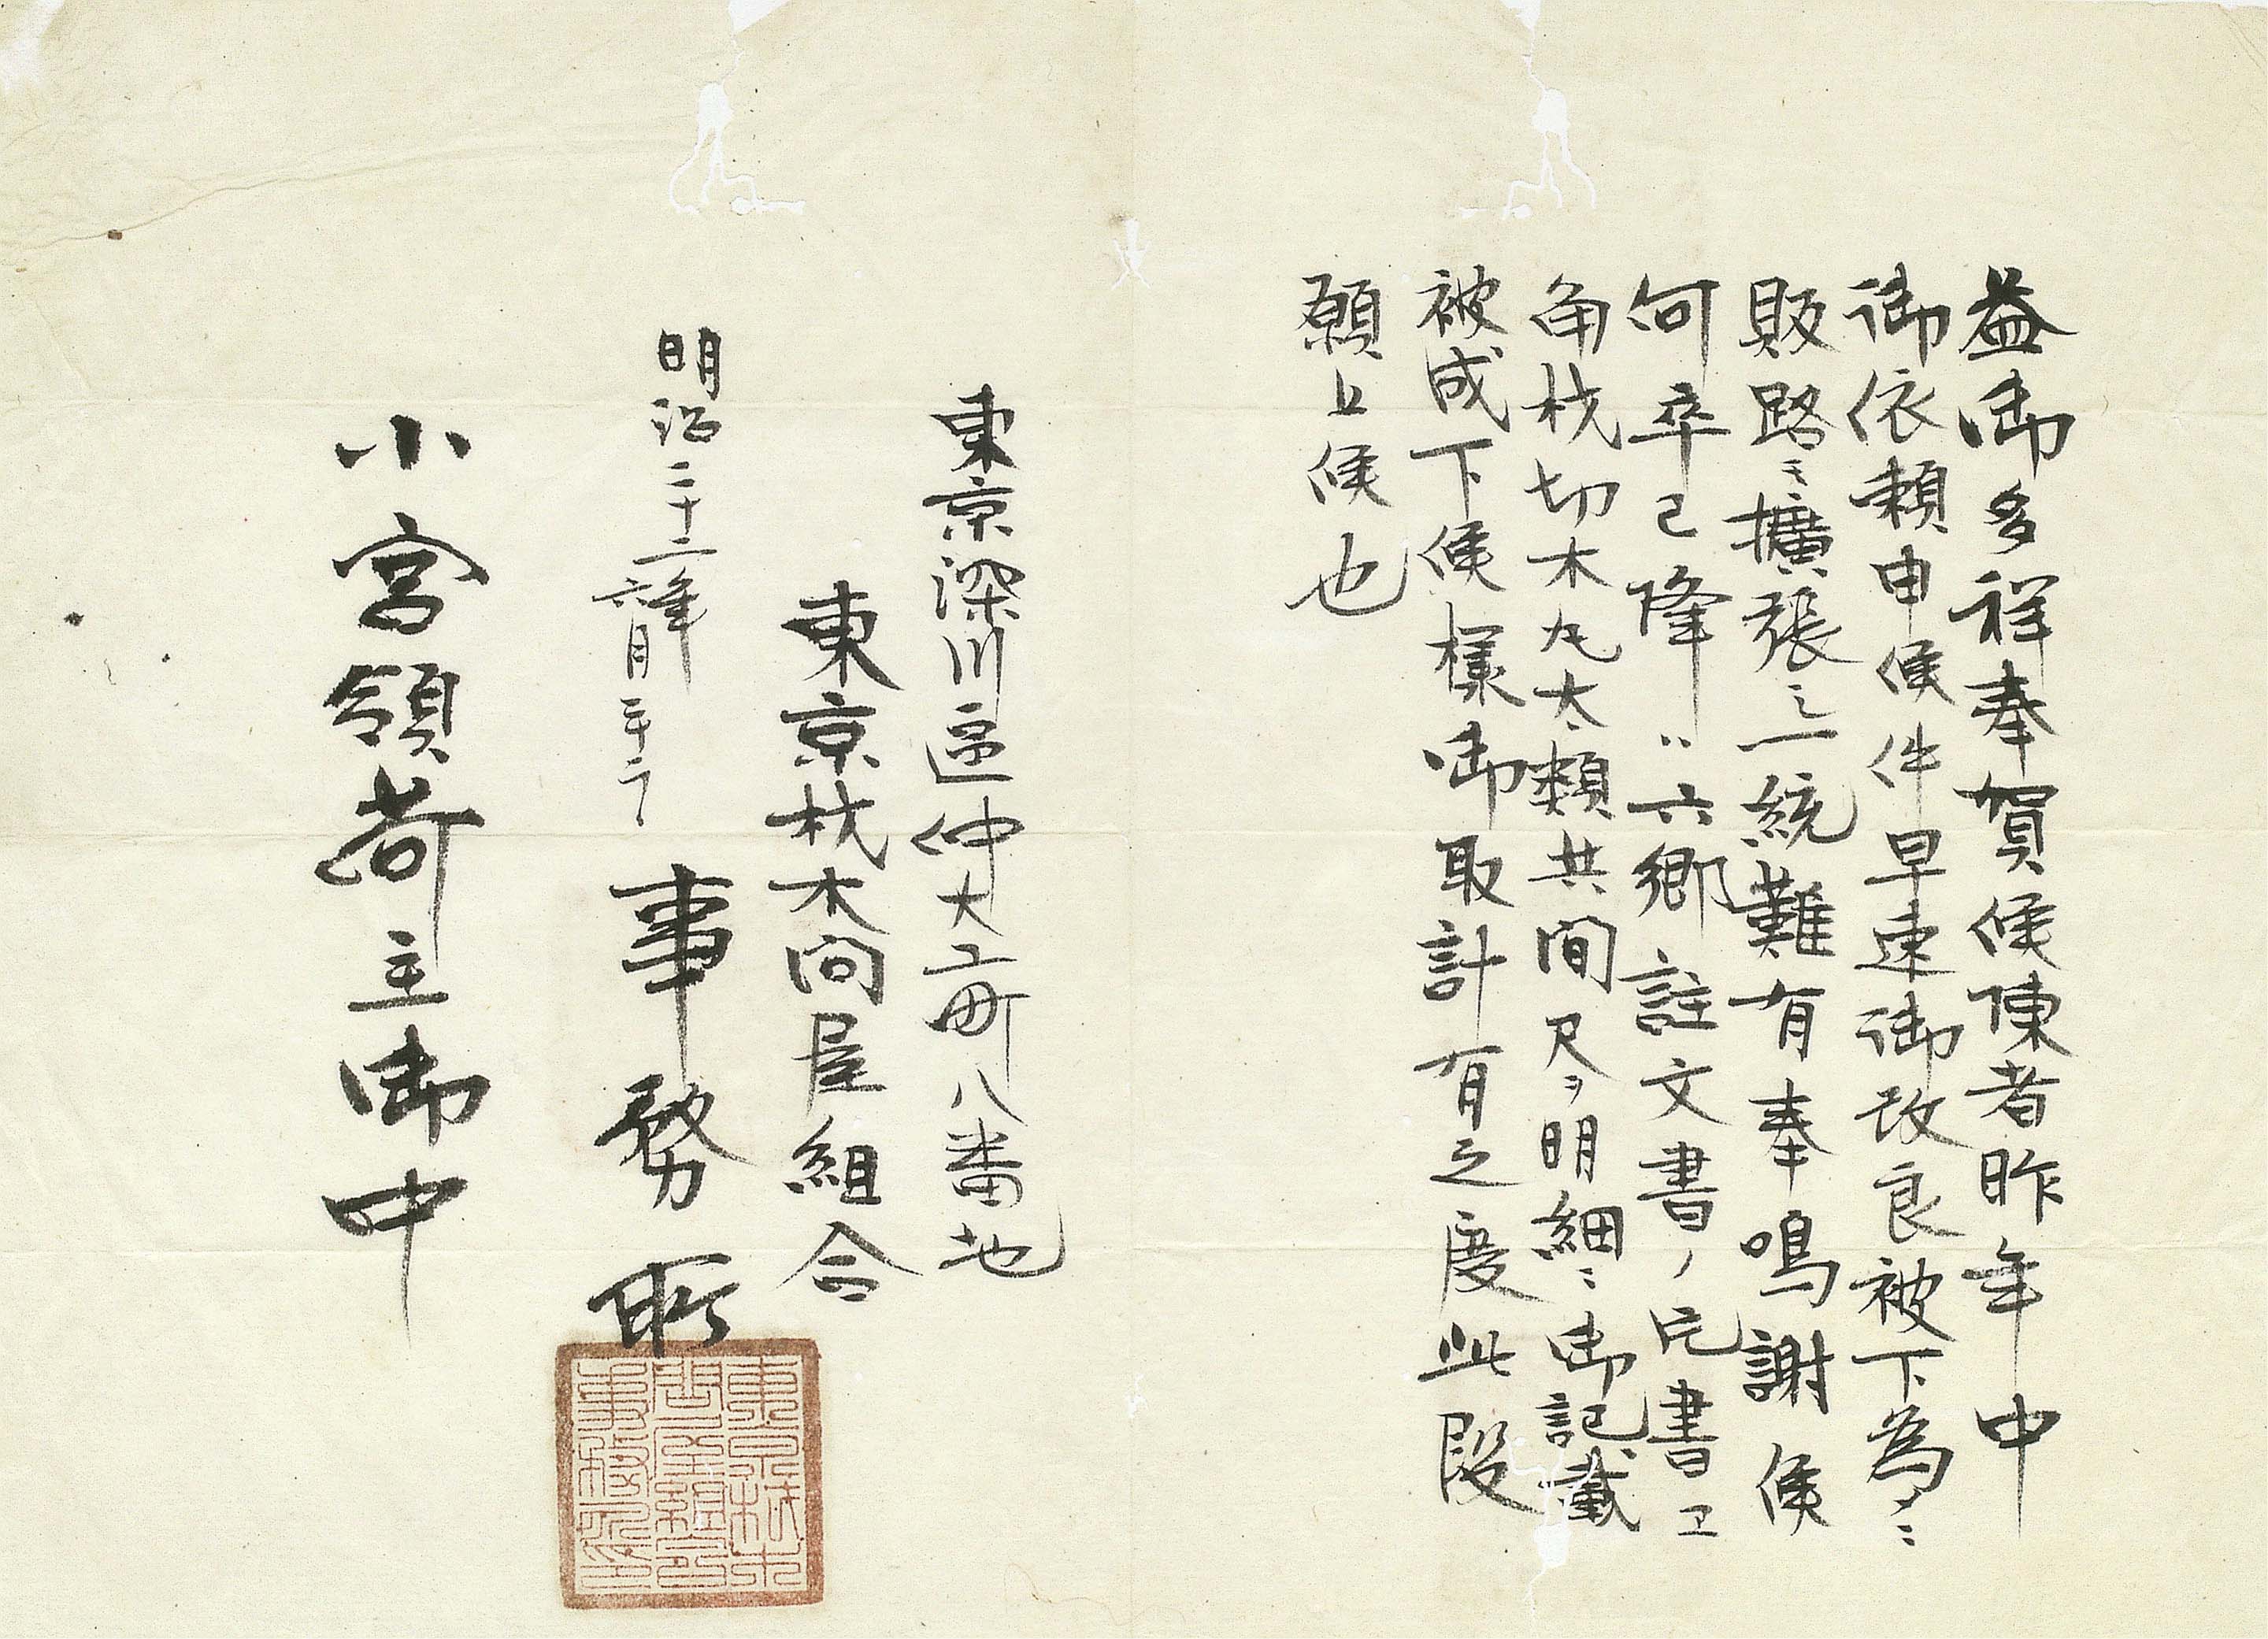 益御多祥奉賀候陳者昨年中
御依頼申候件早速御改良被下為ﾒﾆ
販路ﾓ擴張シ一統難有奉鳴謝候
何卒已降ハ六郷註文書ノ元書ヱ
角材切木丸太類共間尺ヲ明細ニ御記載
被成下候様御取計有之度此段
願上候也
東京深川區仲大工町八番地
東京材木問屋組合
事務所
明治二十二年
六月二十二日
小宮領荷主御中
東京材木
問屋組合
事務所印